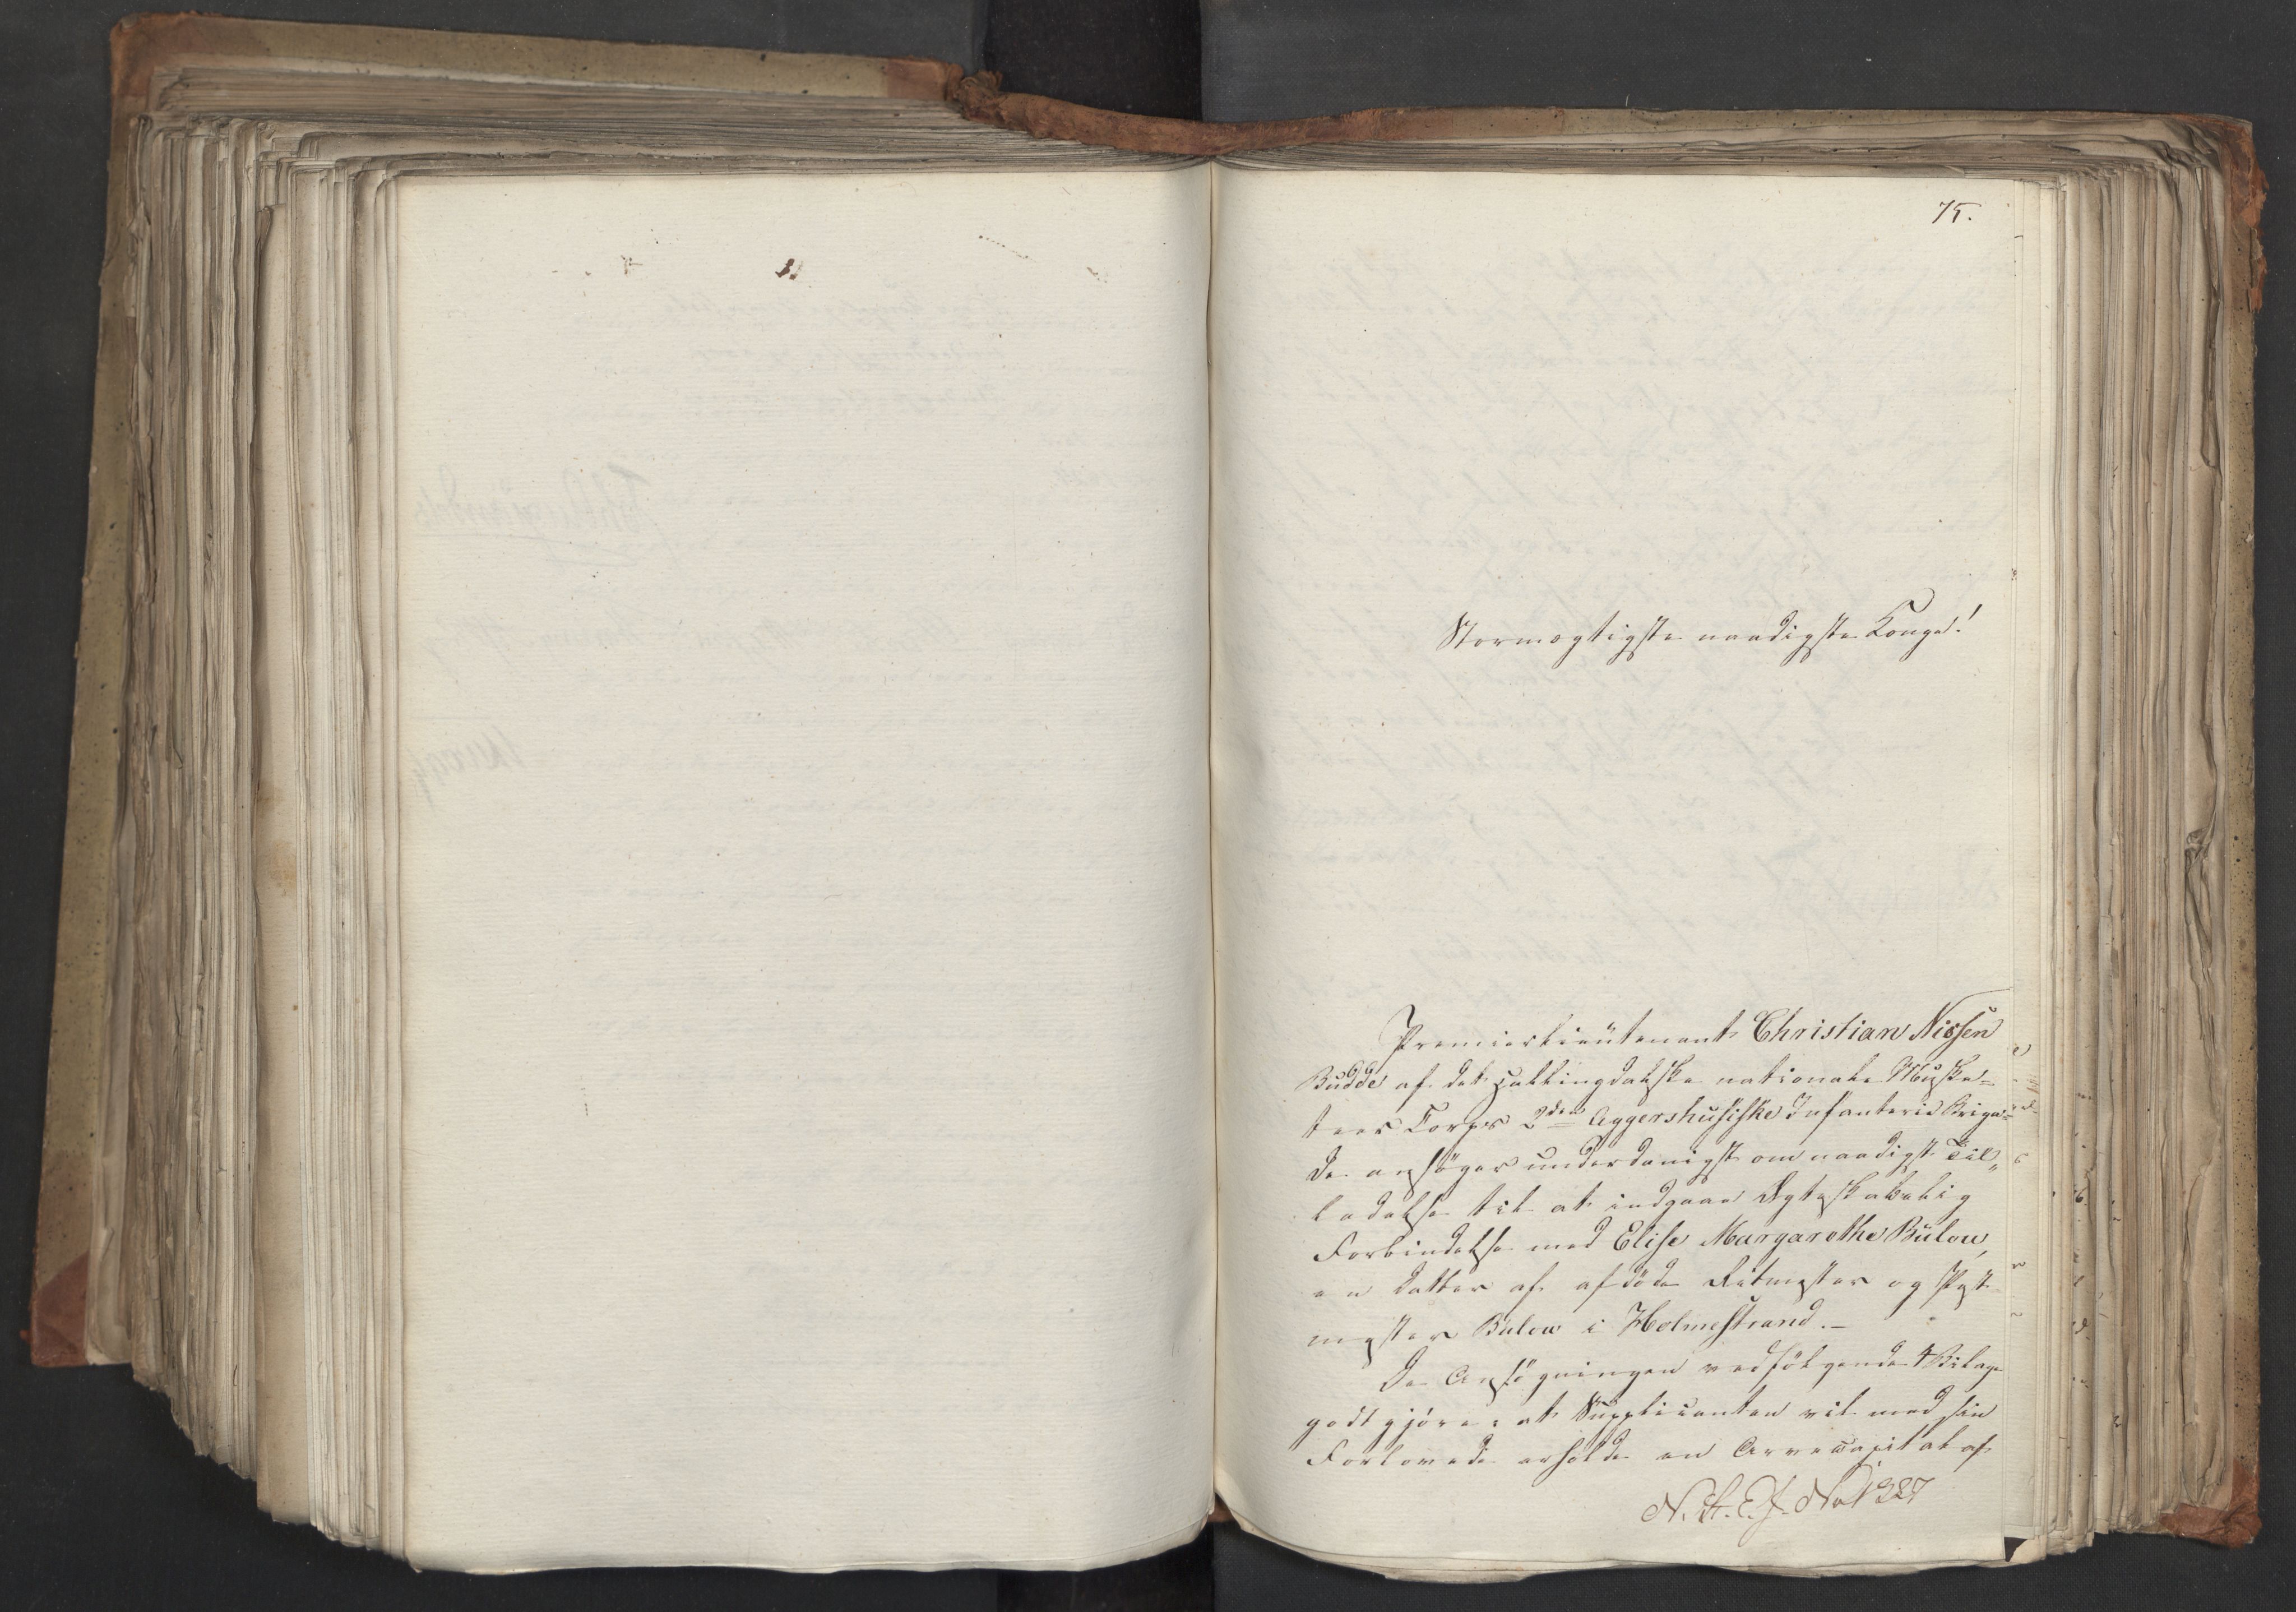 75.
Stormægtigste naadigste Konge!
Premierlieutenant Christian Nissen
Budde af det hallingdalske nationale Muske-
teer Corps 2den Aggershusiske Infanterie Briga-
de ansöger underdanigst om naadigst Til„
ladelse til at indgaae Ægteskabelig
Forbindelse med Elise Margarethe Bülow,
en Datter af afdöde Ritmester og Post-
mester Bülow i Holmestrand.-
De Ansögningen vedfölgende 4 Bilage
godtgjöre: at Supplicanten vil med sin
Forlovede erholde en Arvecapital af
No 1327